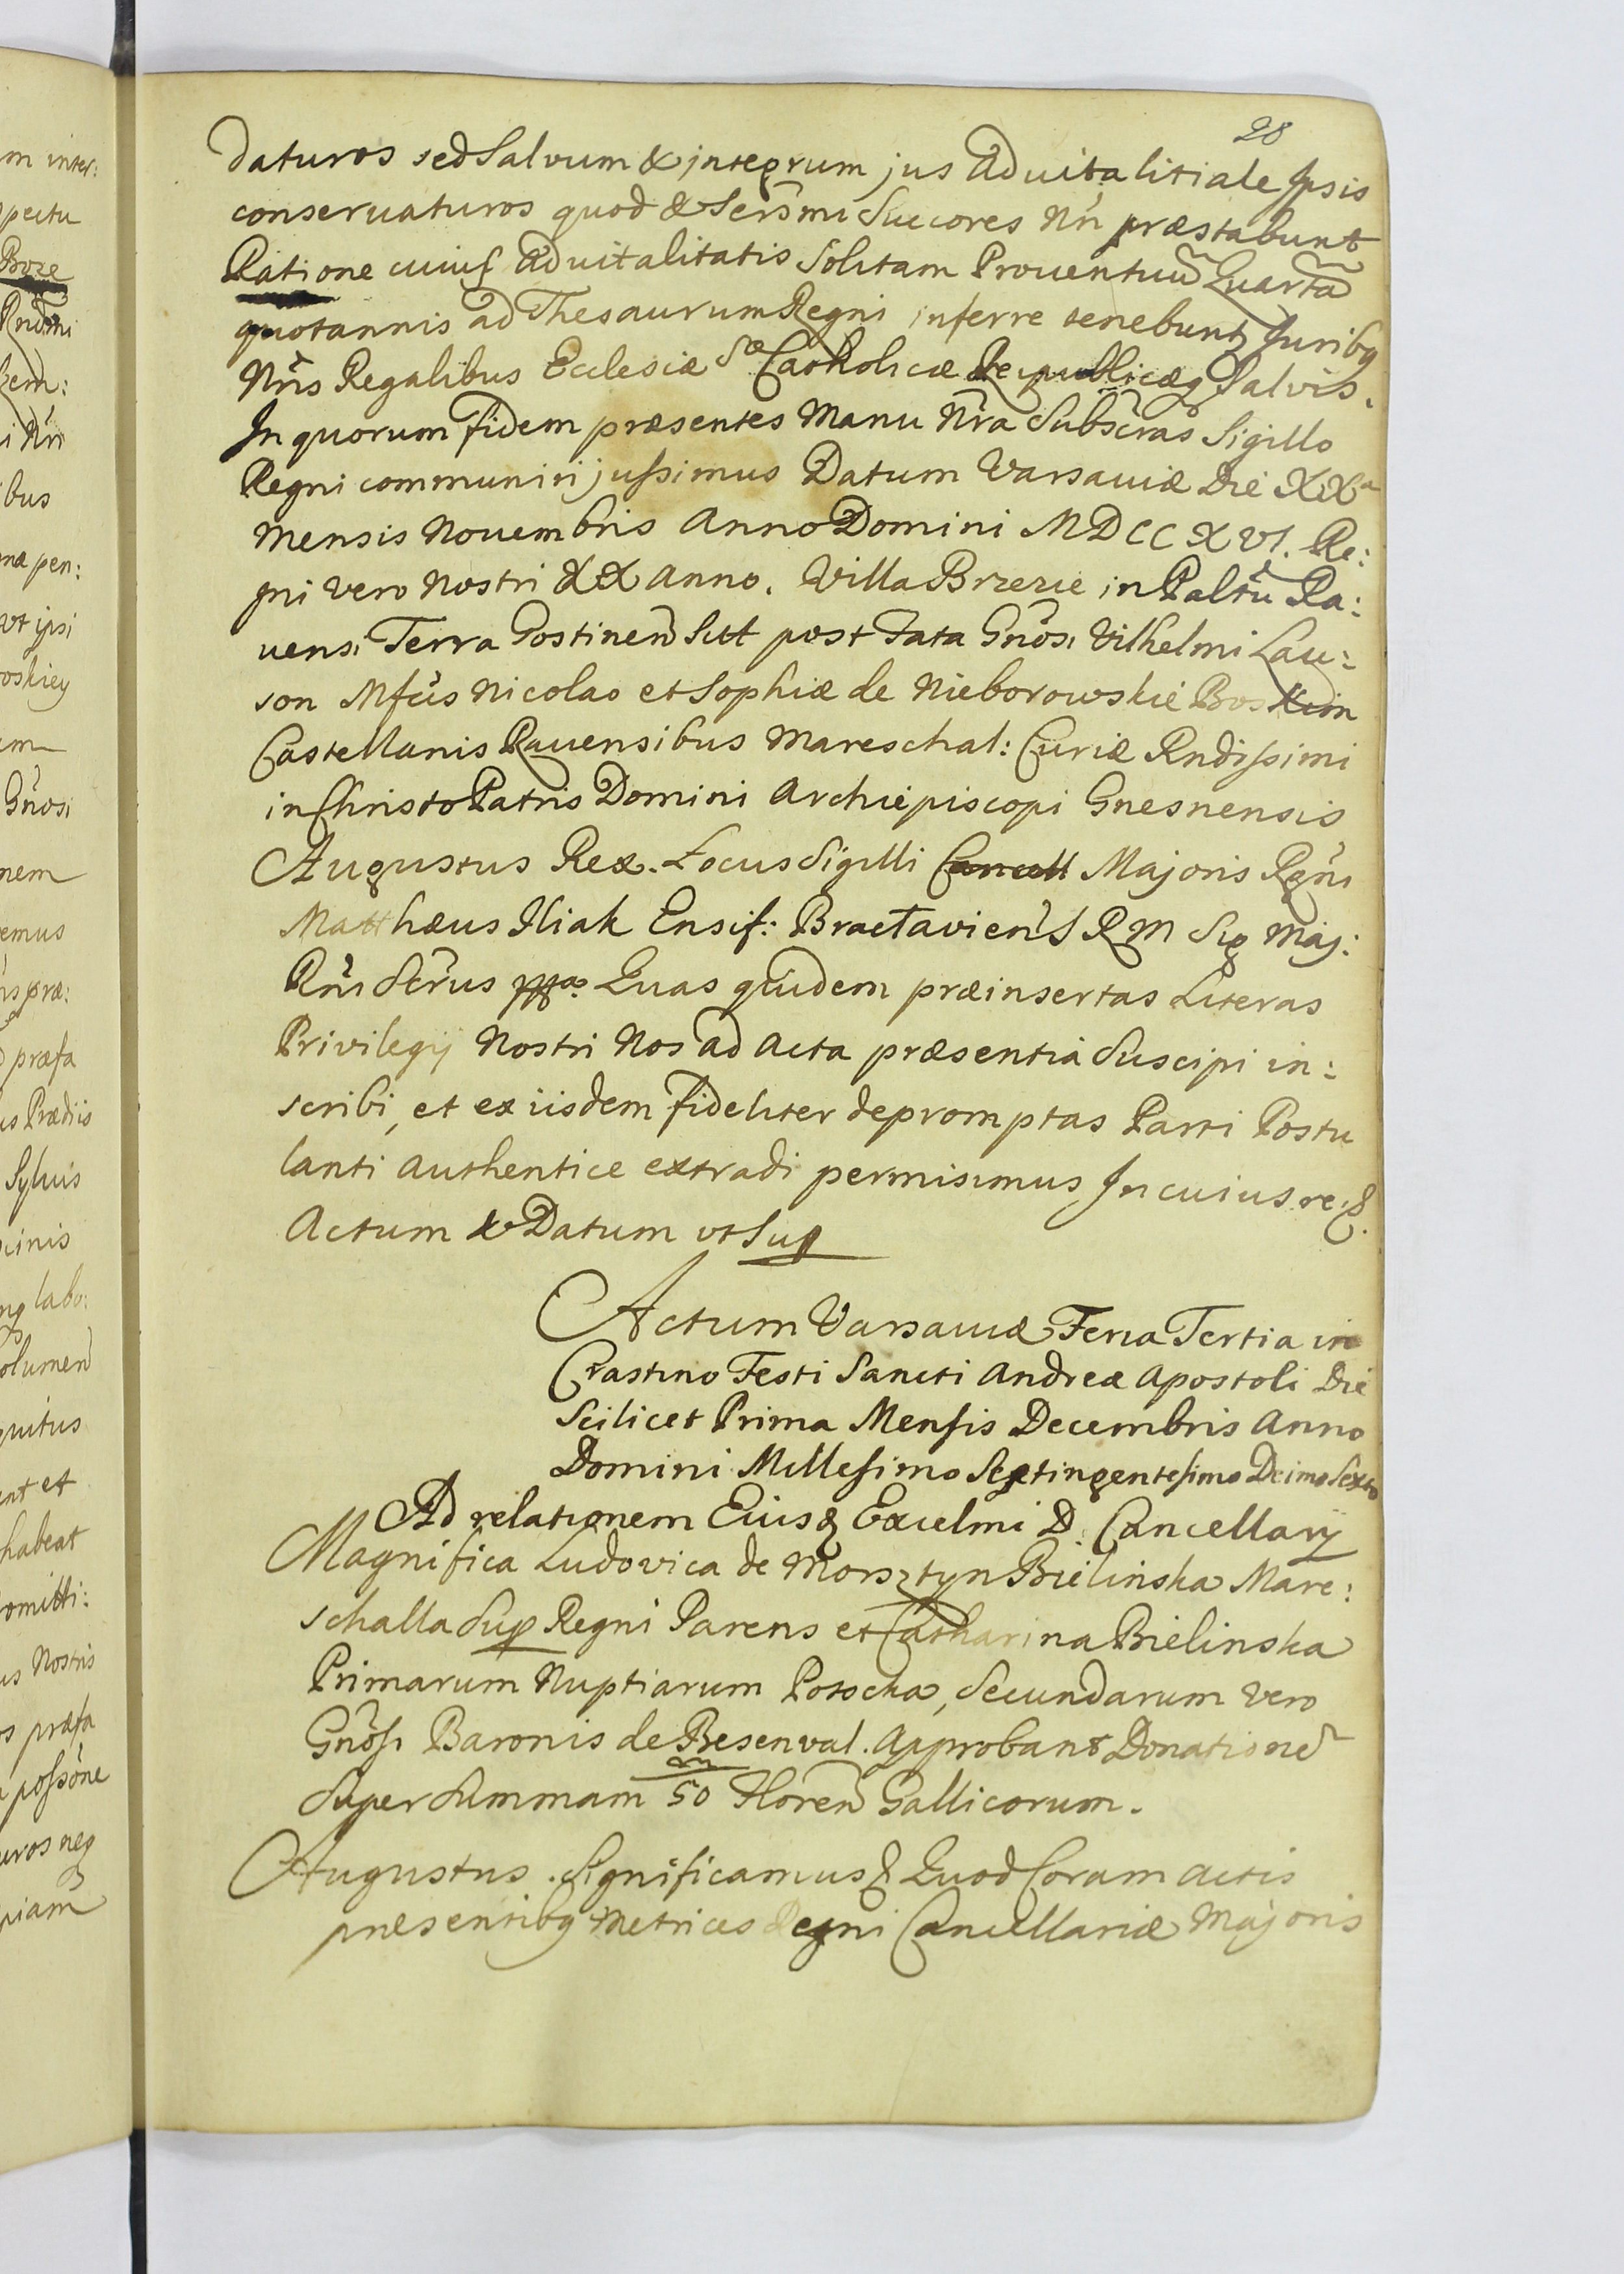 28
daturos sed Salvum & jntegrum jus Aduitalitiale Jpsis
conseruaturos quod & Serñmi Succores Nrĩ præstabunt
Ratione cuius Aduitalitatis Solitam Prouentuũ Quartã
quotannis ad Thesaurum Regni inferre tenebuntz Juribq
Nrĩs Regalibus Ecclesiæ Sæ Catholicæ Reipublicæq Salvis.
Jn quorum fidem præsentes Manu Nrã Subscras Sigillo
Regni communiri jussimus Datum Varsauiæ Die XXa
Mensis Nouembris Anno Domini MDCCXVI. Re:
gni vero Nostri XX Anno. Villa Brzezie in Paltũ Ra:
uensi Terra Gostinen Sitt post Fata Gnõsi Vilhelmi Lau:
son Mfcis Nicolao et Sophiæ de Nieborowskie
Castellanis Rauensibus Mareschal: Curiæ Rndissimi
in Christo Patris Domini Archiepiscopi Gnesnensis
Augustus Rex. Locus Sigilli Cancell Majoris Rgñi
Matthæus Iliak Ensif: Braclavien S R M Sig Maj:
Rñi Scrus Quas quidem præinsertas Literas
Privilegij Nostri Nos ad Acta præsentia Suscipi in:
scribi, et ex iisdem fideliter depromptas Parti Postu
lanti Authentice extradi permisimus Jn cuius rei &.
Actum & Datum vt Sup
Actum Varsauiæ Feria Tertia in
Crastino Festi Sancti Andreæ Apostoli Die
Scilicet Prima Mensis Decembris Anno
Domini Millesimo Septingentesimo Decimo Sexto
Ad relationem Eiusd Excelmi D. Cancellarij
Magnifica Ludovica de Morsztyn Bielinska Mare:
schalla Sup Regni Parens et Catharina Bielinska
Primarum Nuptiarum Potocka, Secundarum vero
Gnõsi Baronis de Besenval. Approbant Donationẽ
Super Summam 50 Floren Gallicorum.
Augustus. Significamus & Quod Coram Actis
præsentibq Metrices Regni Cancellariæ Majoris